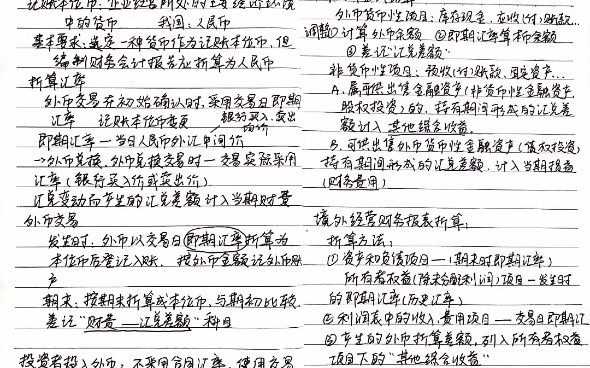 记账本位币：企业经营所处的主要经济环境
中的货币 我国：人民币
基本要求：选定一种货币作为记账本位币，但
编制财务会计报告应折算为人民币
折算汇率
外币交易在初始确认时，采用交易日即期
汇率 记账本位币变更 银行买入、卖出
即期汇率—当日人民币外汇中间价
→外币兑换，外币兑换交易时—交易实际采用
汇率（银行买入价或卖出价）
汇兑变动而产生的汇兑差额计入当期财费
外币交易
发生时：外币以交易日即期汇率折算为
本位币后登记入账，按外币金额记外币账
户
期末：按期末折算成本位币，与期初比较
差记“财费—汇兑差额”科目
投资者投入外币：不采用合同汇率，使用交易
外币货币性项目：库存现金、应收（付）账款...
调整①计算外币余额 ②即期汇率算折余额
③差记“汇兑差额”
非货币性项目：预收（付）账款、固定资产...
A.属可供出售金融资产（非货币性金融资产
股权投资）的，持有期间形成的汇兑差
额计入其他综合收益.
B.可供出售外币货币性金融资产（债权投资）
持有期间形成的汇兑差额，计入当期损益
（财务费用）
境外经营财务报表折算：
折算方法：
①资产和负债项目—（期末时即期汇率）
所有者权益（除未分配利润）项目—发生时
的即期汇率（历史汇率）
②利润表中的收入、费用项目—交易日即期汇
③产生的外币折算差额，列入所有者权益
项目下的“其他综合收益”